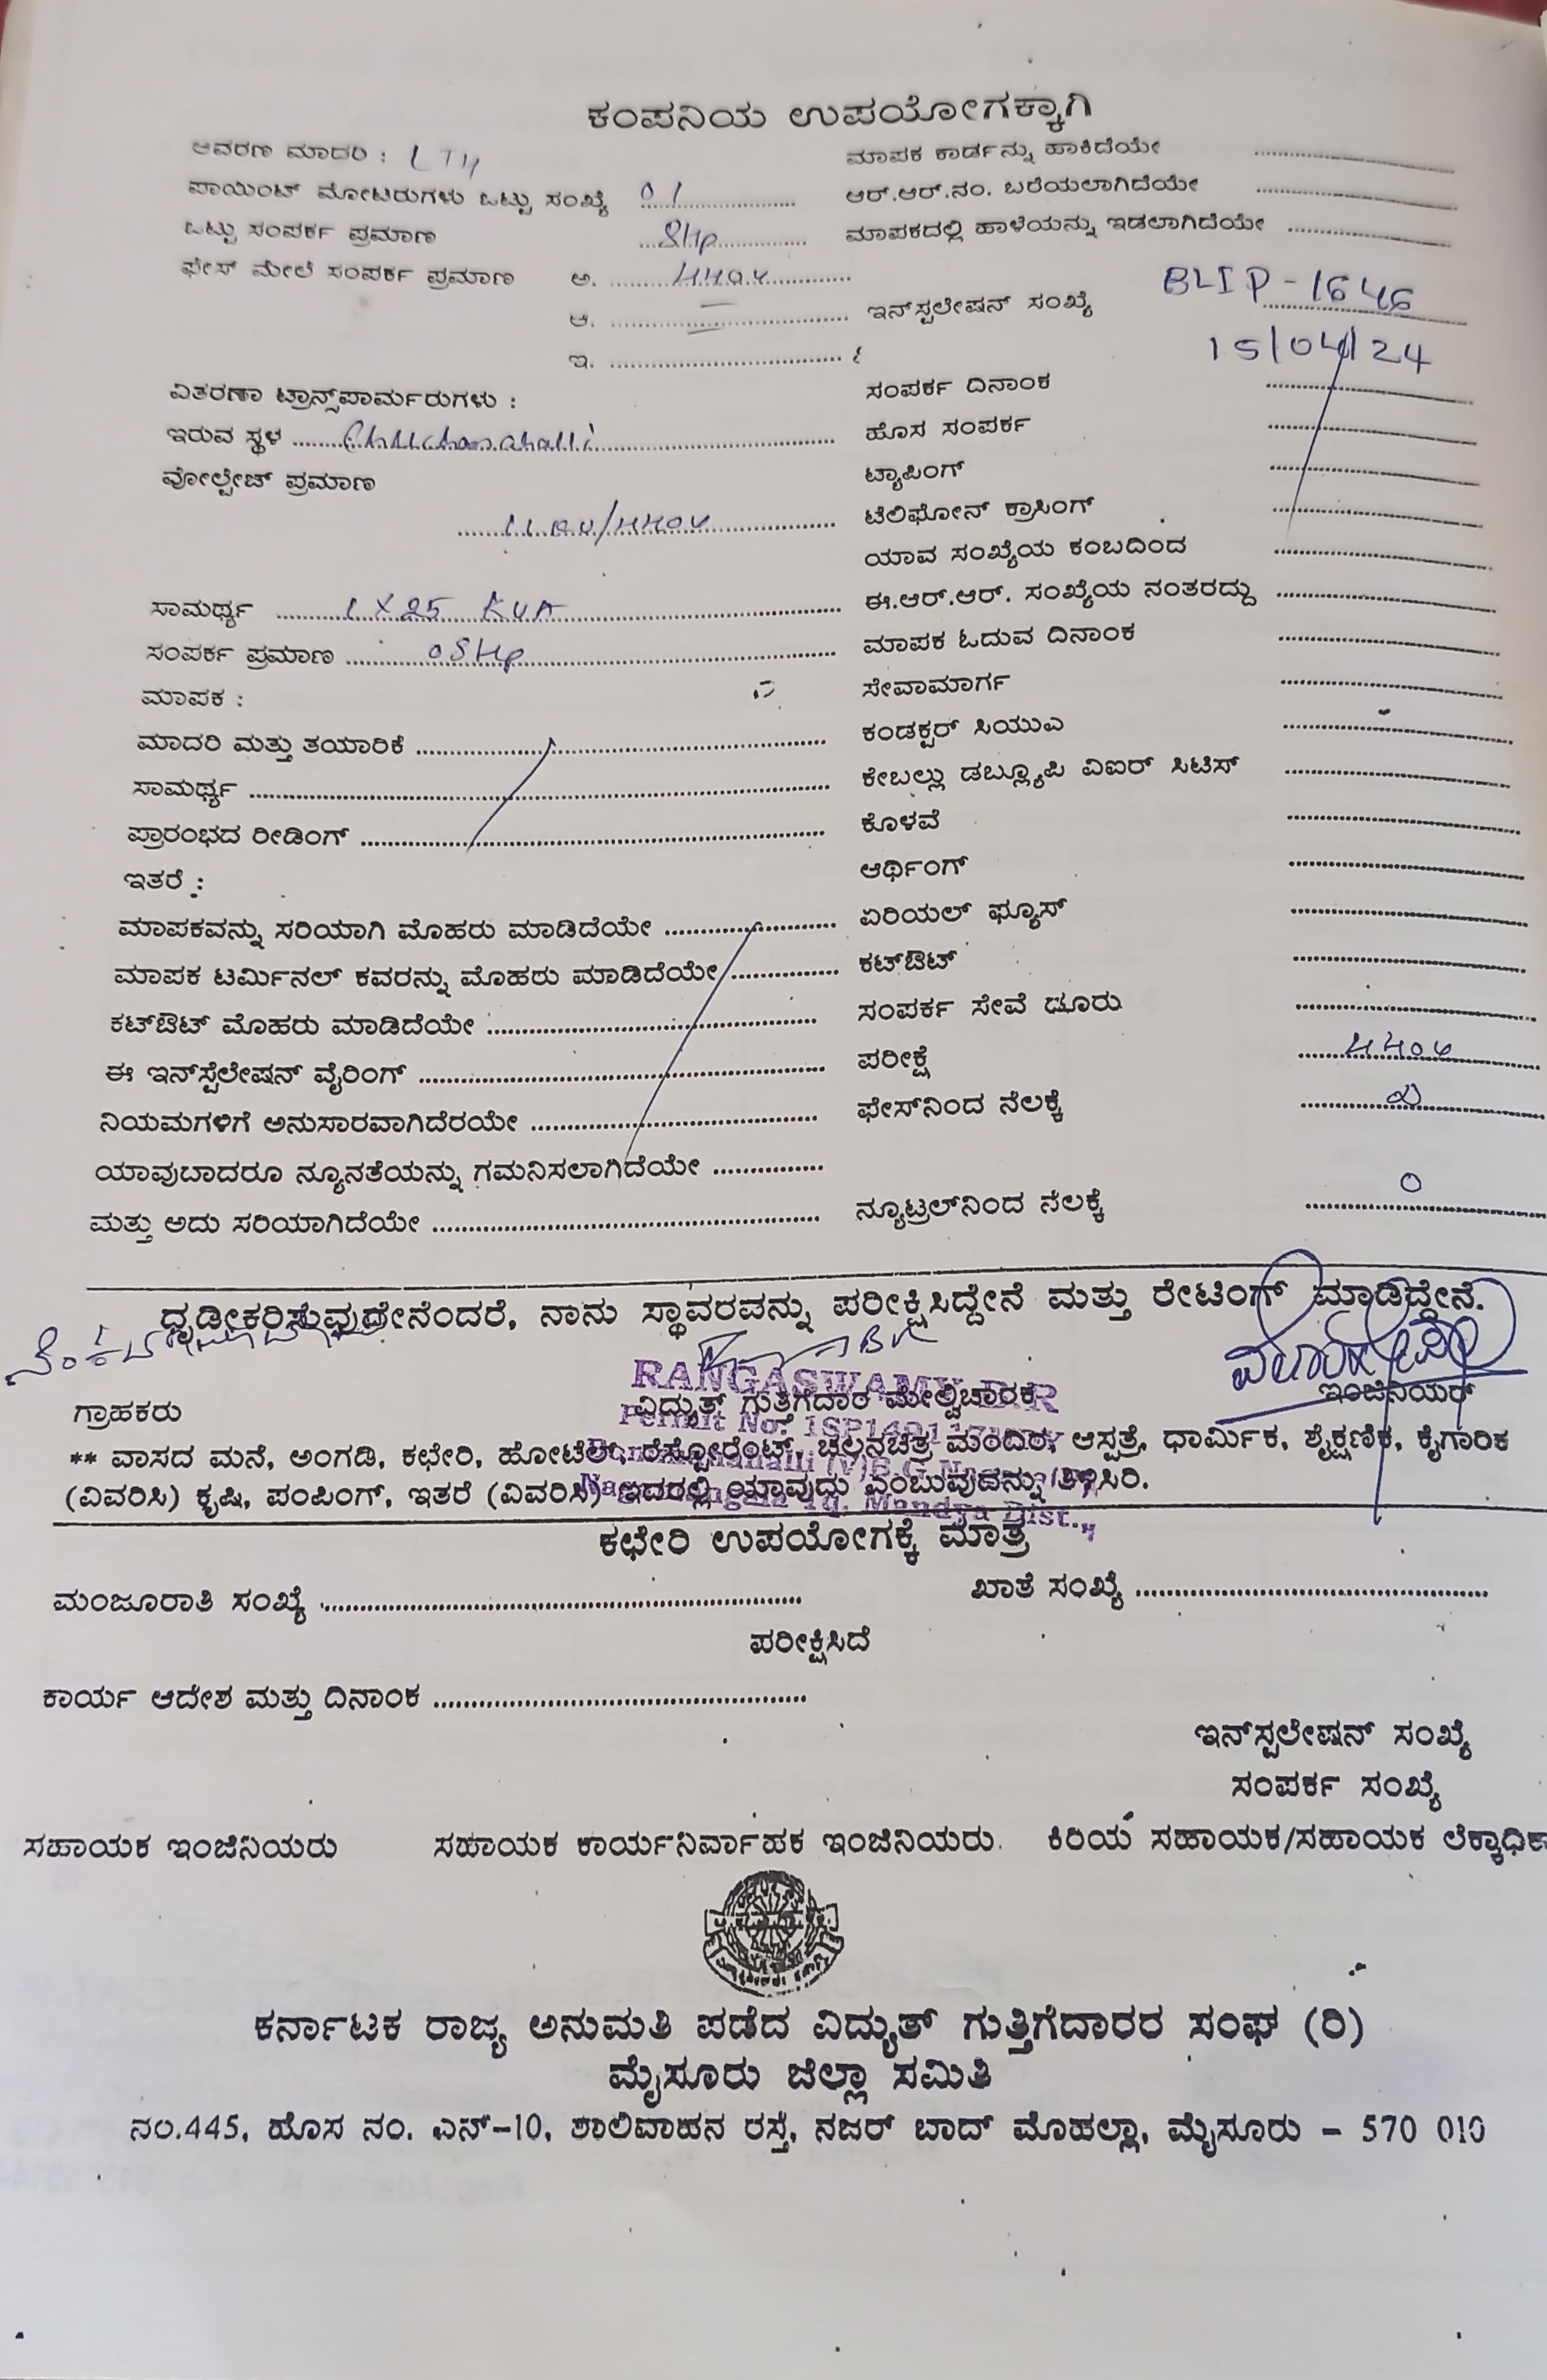 ಕಂಪನಿಯ ಉಪಯೋಗಕ್ಕಾಗಿ
ಆವರಣ ಮಾದರಿ :
ಮಾಪಕ ಕಾರ್ಡನ್ನು ಹಾಕಿದೆಯೇ
ಪಾಯಿಂಟ್ ಮೋಟರುಗಳು ಒಟ್ಟು ಸಂಖ್ಯೆ 01
ಆರ್.ಆರ್.ನಂ. ಬರೆಯಲಾಗಿದೆಯೇ
ಒಟ್ಟು ಸಂಪರ್ಕ ಪ್ರಮಾಣ
ಮಾಪಕದಲ್ಲಿ ಹಾಳೆಯನ್ನು ಇಡಲಾಗಿದೆಯೇ
ಫೇಸ್ ಮೇಲೆ ಸಂಪರ್ಕ ಪ್ರಮಾಣ ಅ. 440V
ಆ.
ಇನ್‌ಸ್ಟಲೇಷನ್ ಸಂಖ್ಯೆ BLIP-1646
ಇ.
15/04/24
ವಿತರಣಾ ಟ್ರಾನ್ಸ್‌ಪಾರ್ಮರುಗಳು :
ಸಂಪರ್ಕ ದಿನಾಂಕ
ಇರುವ ಸ್ಥಳ
ಹೊಸ ಸಂಪರ್ಕ
ವೋಲ್ಟೇಜ್ ಪ್ರಮಾಣ
ಟ್ಯಾಪಿಂಗ್
11KV/440V
ಟೆಲಿಫೋನ್ ಕ್ರಾಸಿಂಗ್
ಯಾವ ಸಂಖ್ಯೆಯ ಕಂಬದಿಂದ
ಸಾಮರ್ಥ್ಯ 1X25 KVA
ಈ.ಆರ್.ಆರ್. ಸಂಖ್ಯೆಯ ನಂತರದ್ದು
ಸಂಪರ್ಕ ಪ್ರಮಾಣ
ಮಾಪಕ ಓದುವ ದಿನಾಂಕ
ಮಾಪಕ :
ಸೇವಾಮಾರ್ಗ
ಮಾದರಿ ಮತ್ತು ತಯಾರಿಕೆ
ಕಂಡಕ್ಟರ್ ಸಿಯುಎ
ಸಾಮರ್ಥ್ಯ
ಕೇಬಲ್ಲು ಡಬ್ಲ್ಯೂಪಿ ವಿಐರ್ ಸಿಟಿಸ್
ಪ್ರಾರಂಭದ ರೀಡಿಂಗ್
ಕೊಳವೆ
ಇತರೆ :
ಆರ್ಥಿಂಗ್
ಮಾಪಕವನ್ನು ಸರಿಯಾಗಿ ಮೊಹರು ಮಾಡಿದೆಯೇ
ಏರಿಯಲ್ ಫ್ಯೂಸ್
ಮಾಪಕ ಟರ್ಮಿನಲ್ ಕವರನ್ನು ಮೊಹರು ಮಾಡಿದೆಯೇ
ಕಟ್‌ಔಟ್
ಕಟ್‌ಔಟ್ ಮೊಹರು ಮಾಡಿದೆಯೇ
ಸಂಪರ್ಕ ಸೇವೆ ಡೂರು
ಈ ಇನ್‌ಸ್ಟೆಲೇಷನ್ ವೈರಿಂಗ್
ಪರೀಕ್ಷೆ 440V
ನಿಯಮಗಳಿಗೆ ಅನುಸಾರವಾಗಿದೆರಯೇ
ಫೇಸ್‌ನಿಂದ ನೆಲಕ್ಕೆ
ಯಾವುಬಾದರೂ ನ್ಯೂನತೆಯನ್ನು ಗಮನಿಸಲಾಗಿದೆಯೇ
ಮತ್ತು ಅದು ಸರಿಯಾಗಿದೆಯೇ
ನ್ಯೂಟ್ರಲ್‌ನಿಂದ ನೆಲಕ್ಕೆ 0
ಧೃಡೀಕರಿಸುವುದೇನೆಂದರೆ, ನಾನು ಸ್ಥಾವರವನ್ನು ಪರೀಕ್ಷಿಸಿದ್ದೇನೆ ಮತ್ತು ರೇಟಿಂಗ್ ಮಾಡಿದ್ದೇನೆ.
RANGASWAMY D R
ಗ್ರಾಹಕರು
ವಿದ್ಯುತ್ ಗುತ್ತಿಗೆದಾರ ಮೇಲ್ವಿಚಾರಕ
ಇಂಜಿನಿಯರ್
Permit No.
** ವಾಸದ ಮನೆ, ಅಂಗಡಿ, ಕಛೇರಿ, ಹೋಟೆಲ್, ರೆಸ್ಟೋರೆಂಟ್, ಚಲನಚಿತ್ರ ಮಂದಿರ, ಆಸ್ಪತ್ರೆ, ಧಾರ್ಮಿಕ, ಶೈಕ್ಷಣಿಕ, ಕೈಗಾರಿಕ
(ವಿವರಿಸಿ) ಕೃಷಿ, ಪಂಪಿಂಗ್, ಇತರೆ (ವಿವರಿಸಿ) ಇದರಲ್ಲಿ ಯಾವುದು ಎಂಬುವುದನ್ನು ತಿಳಿಸಿರಿ.
Mandya Dist.,
ಕಛೇರಿ ಉಪಯೋಗಕ್ಕೆ ಮಾತ್ರ
ಮಂಜೂರಾತಿ ಸಂಖ್ಯೆ
ಖಾತೆ ಸಂಖ್ಯೆ
ಪರೀಕ್ಷಿಸಿದೆ
ಕಾರ್ಯ ಆದೇಶ ಮತ್ತು ದಿನಾಂಕ
ಇನ್‌ಸ್ಟಲೇಷನ್ ಸಂಖ್ಯೆ
ಸಂಪರ್ಕ ಸಂಖ್ಯೆ
ಸಹಾಯಕ ಇಂಜಿನಿಯರು ಸಹಾಯಕ ಕಾರ್ಯನಿರ್ವಾಹಕ ಇಂಜಿನಿಯರು. ಕಿರಿಯ ಸಹಾಯಕ/ಸಹಾಯಕ ಲೆಕ್ಕಾಧಿಕಾ
ಕರ್ನಾಟಕ ರಾಜ್ಯ ಅನುಮತಿ ಪಡೆದ ವಿದ್ಯುತ್ ಗುತ್ತಿಗೆದಾರರ ಸಂಘ (ರಿ)
ಮೈಸೂರು ಜಿಲ್ಲಾ ಸಮಿತಿ
ನಂ.445, ಹೊಸ ನಂ. ಎನ್-10, ಶಾಲಿವಾಹನ ರಸ್ತೆ, ನಜರ್ ಬಾದ್ ಮೊಹಲ್ಲಾ, ಮೈಸೂರು - 570 010